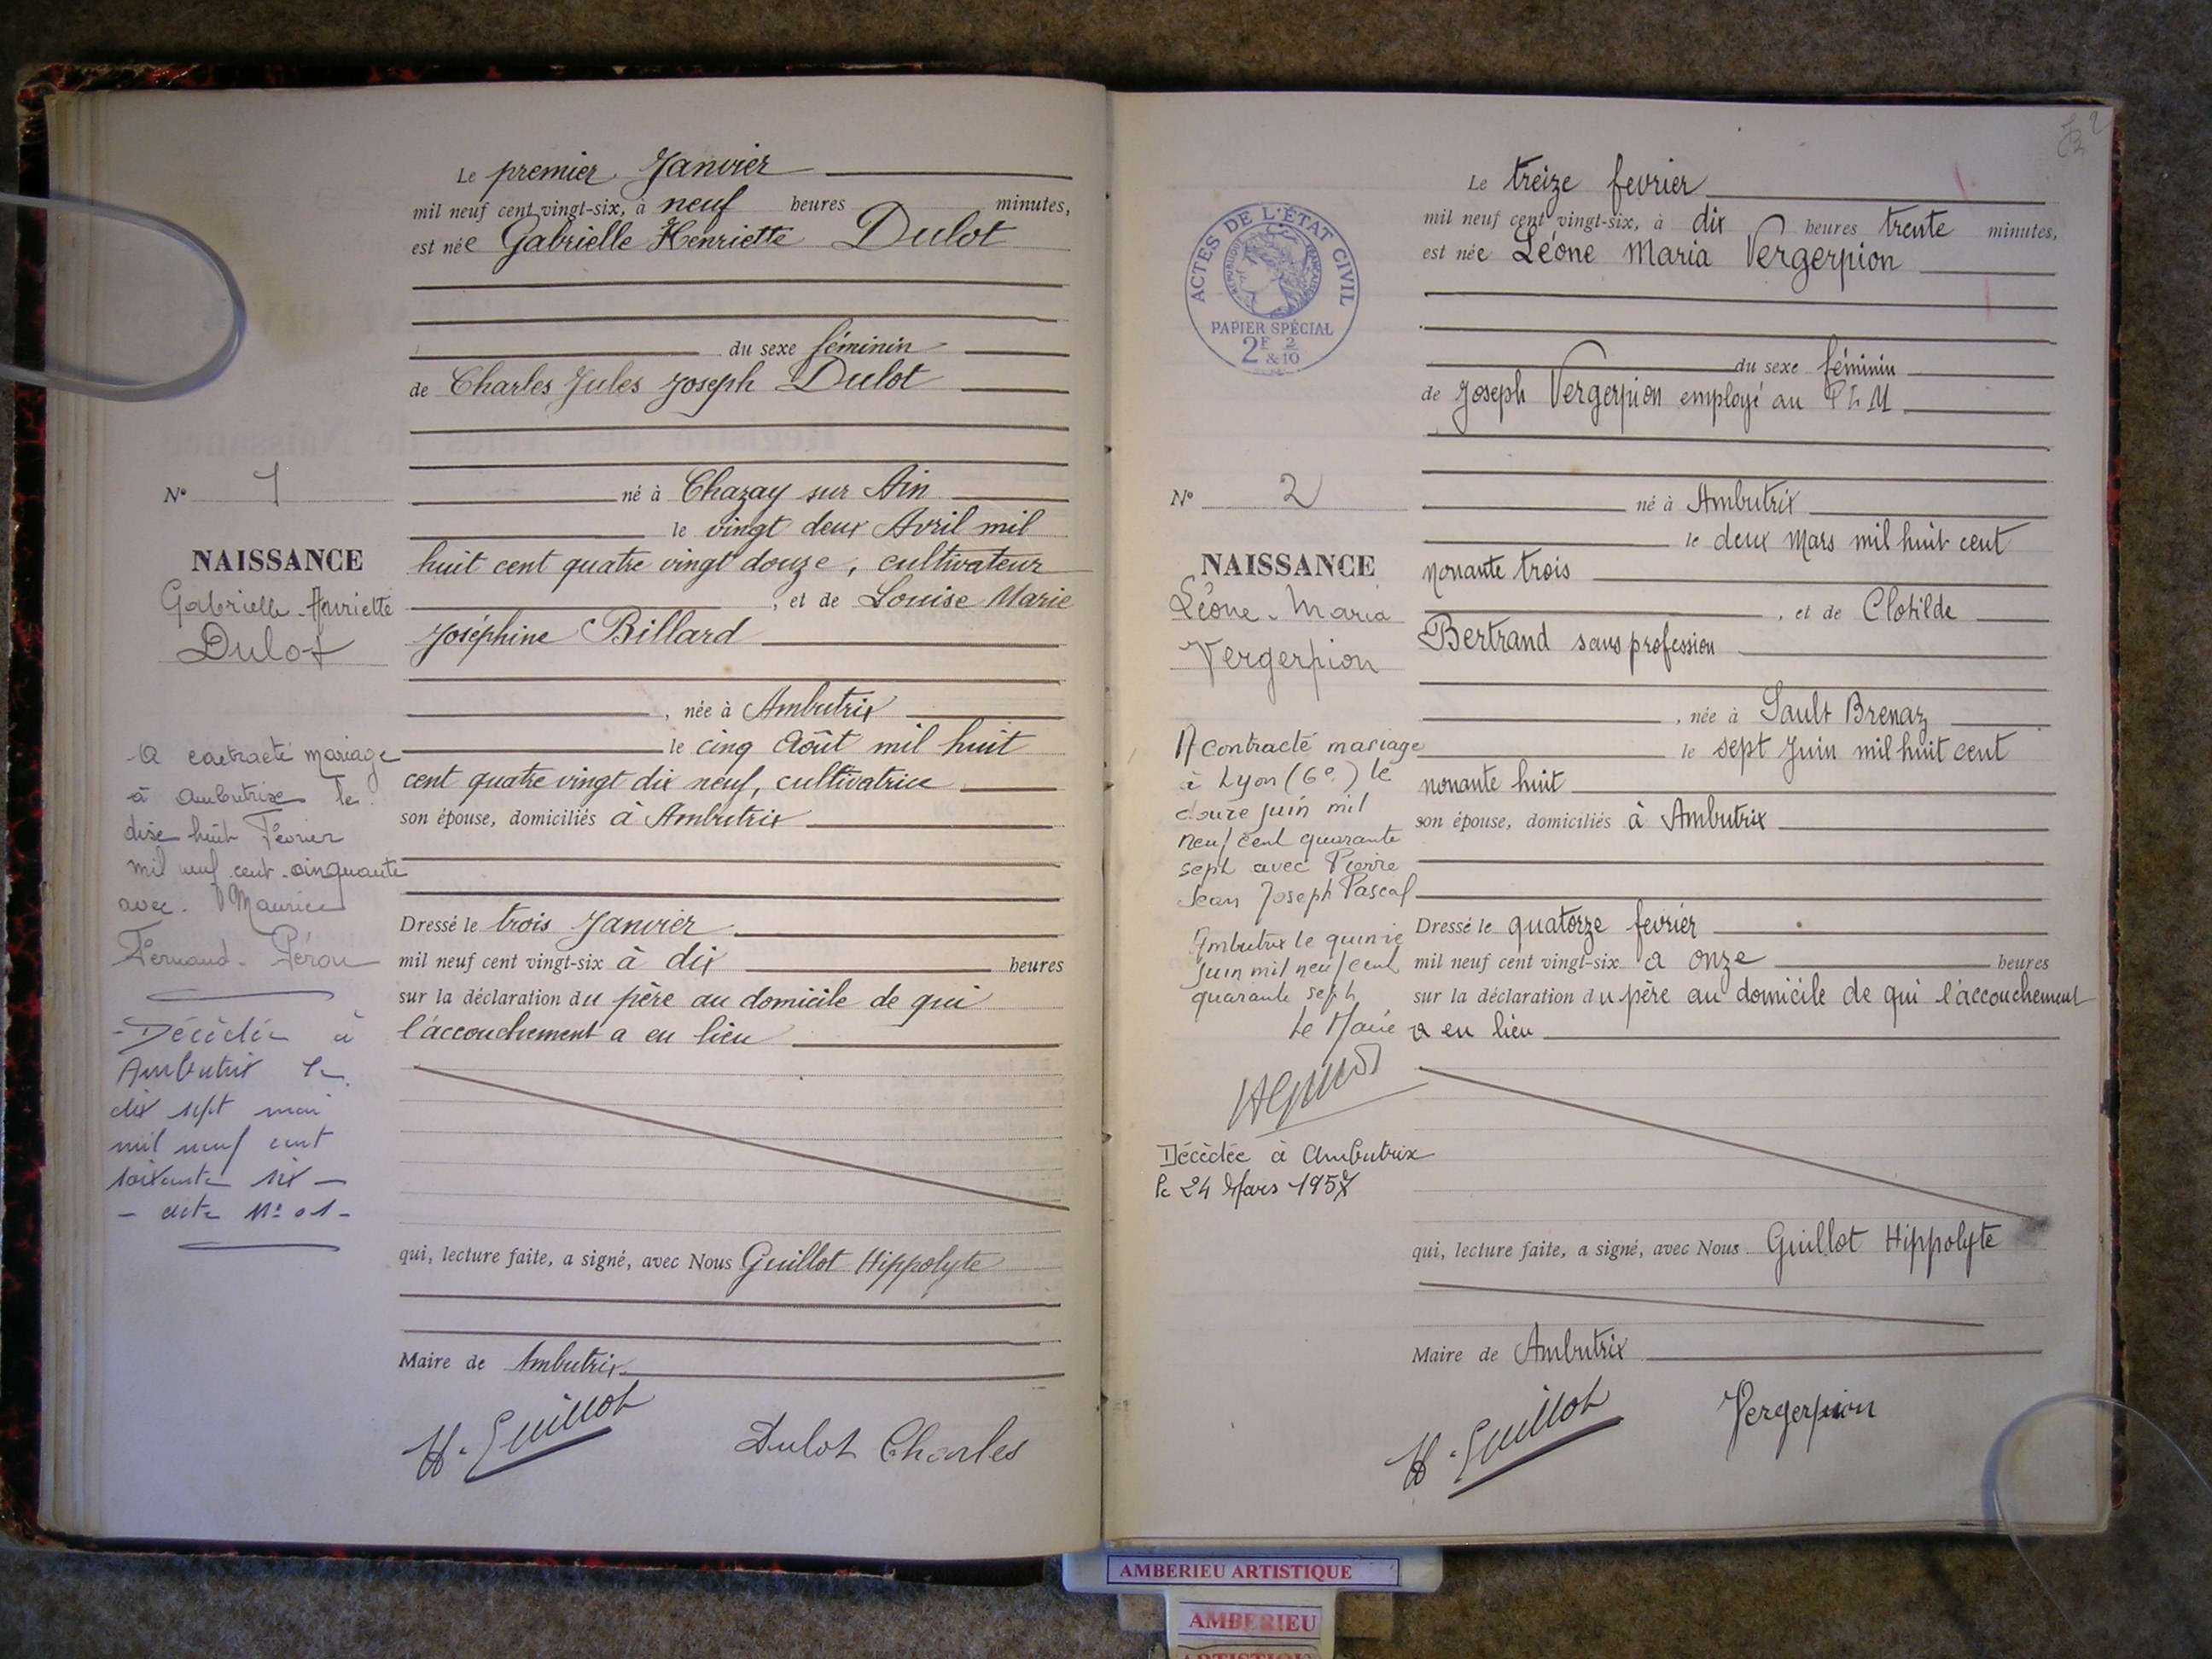 Le premier Janvier
mil neuf cent vingt-six, à neuf heures minutes,
est née Gabrielle Henriette Dulot
du sexe féminin
de Charles Jules Joseph Dulot
N° 1
né à Chazay sur Ain
le vingt deux Avril mil
NAISSANCE
huit cent quatre vingt douze, cultivateur
Gabrielle-Henriette
Dulot
, et de Louise Marie
Joséphine Billard
, née à Ambutrix
le cinq Août mil huit
cent quatre vingt dix neuf, cultivatrice
son épouse, domiciliés à Ambutrix
A contracté mariage
à Ambutrix le
dix huit Février
mil neuf cent cinquante
avec Maurice
Fernand Pérou
Décédée à
Ambutrix le
dix sept mai
mil neuf cent
soixante six
acte N° 01
Dressé le trois Janvier
mil neuf cent vingt-six à dix heures
sur la déclaration du père au domicile de qui
l'accouchement a eu lieu
qui, lecture faite, a signé, avec Nous Guillot Hippolyte
Maire de Ambutrix
H. Guillot Dulot Charles
2
ACTES DE L'ÉTAT CIVIL
RÉPUBLIQUE FRANÇAISE
PAPIER SPÉCIAL
2F 2
&10
Le treize fevrier
mil neuf cent vingt-six, à dix heures trente minutes,
est née Léone Maria Vergerpion
du sexe féminin
de Joseph Vergerpion employé au PLM
N° 2
né à Ambutrix
le deux Mars mil huit cent
NAISSANCE
nonante trois
Léone-Maria
Vergerpion
, et de Clotilde
Bertrand sans profession
, née à Sault Brenaz
le sept Juin mil huit cent
nonante huit
son épouse, domiciliés à Ambutrix
A contracté mariage
à Lyon (6e) le
douze juin mil
neuf cent quarante
sept avec Pierre
Jean Joseph Pascal
Ambutrix le quinze
juin mil neuf cent
quarante sept
Le Maire
Décédée à Ambutrix
le 24 Mars 1957
Dressé le quatorze fevrier
mil neuf cent vingt-six a onze heures
sur la déclaration du père au domicile de qui l'accouchement
a eu lieu
qui, lecture faite, a signé, avec Nous Guillot Hippolyte
Maire de Ambutrix
H. Guillot Vergerpion
AMBERIEU ARTISTIQUE
AMBERIEU
ARTISTIQUE